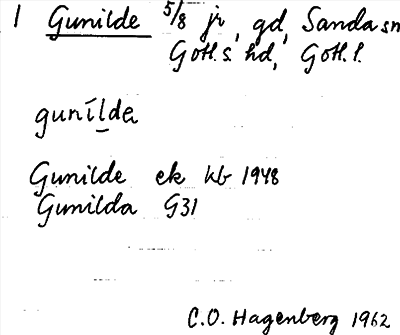 1 Gunilde 5/8 jr, gd, Sanda sn
Gotl. s. hd, Gotl. l.
gunílda
Gunilde ek kb 1948
Gunilda G31
C.O. Hagenberg 1962